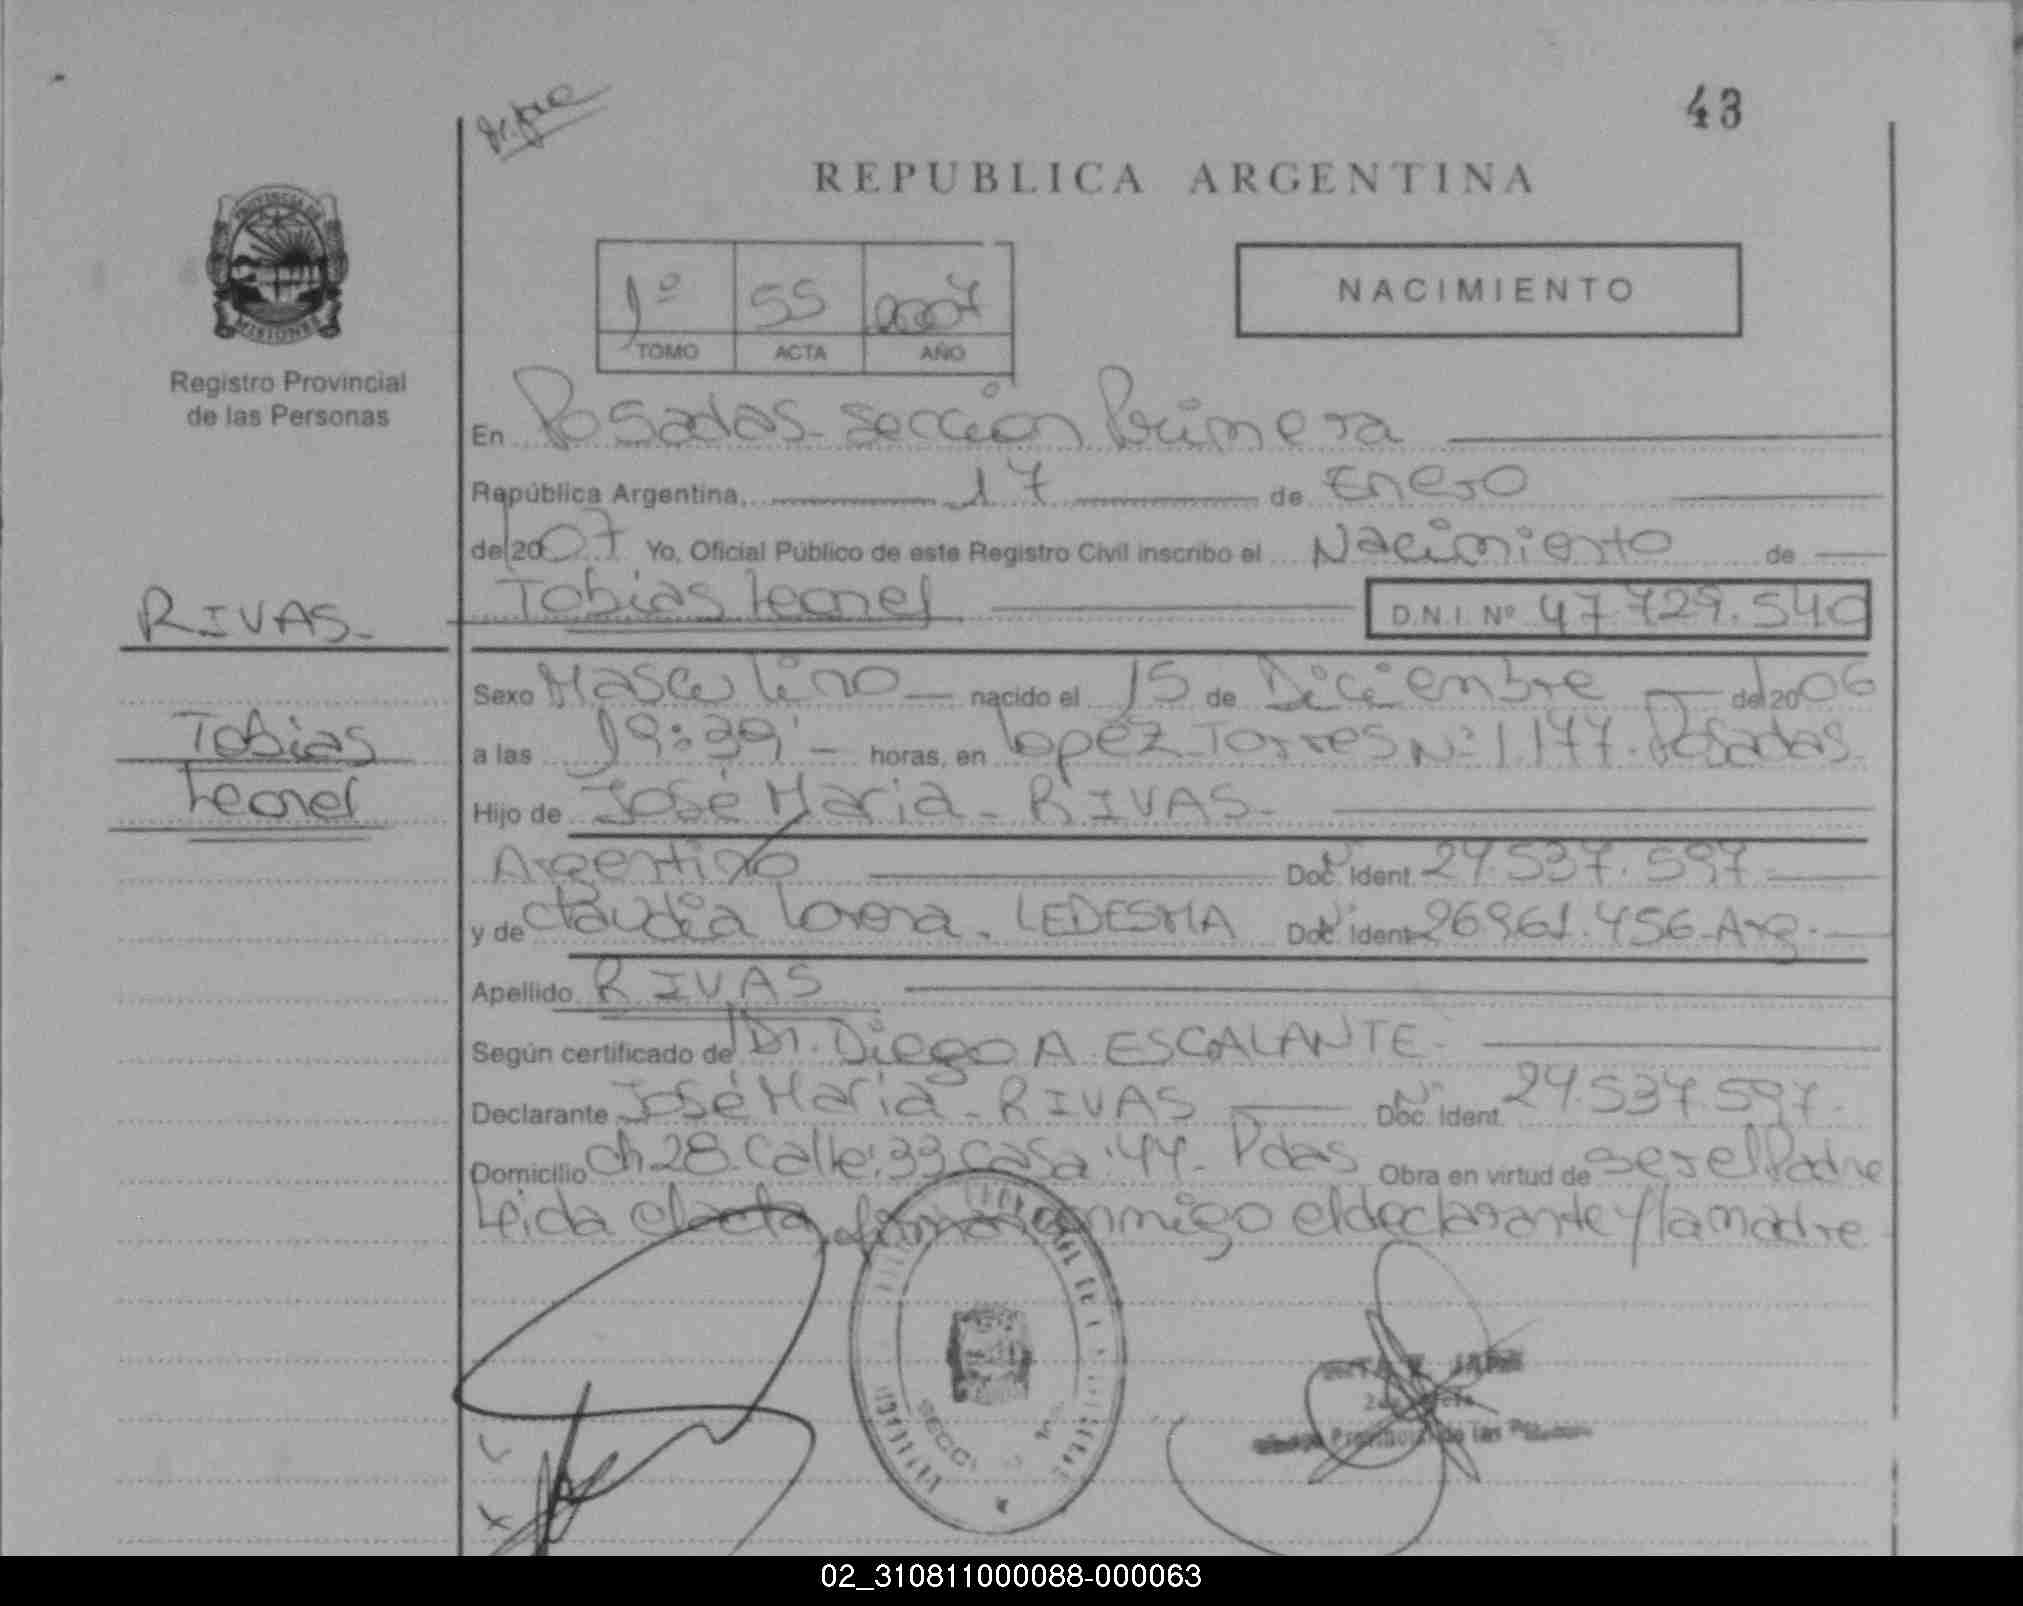 43
REPUBLICA ARGENTINA
PROVINCIA DE
MISIONES
Registro Provincial
de las Personas
1º 55 2007
TOMO ACTA AÑO
NACIMIENTO
En Posadas - sección Primera
República Argentina, 17 de Enero
de 2007 Yo, Oficial Público de este Registro Civil inscribo el Nacimiento de
RIVAS-
Tobias Leonel D.N.I. Nº 47.729.540
Sexo Masculino nacido el 15 de Diciembre de 2006
Tobias
Leonel
a las 19:39' - horas, en Lopez Torres Nº 1.177. Posadas-
Hijo de José Maria - RIVAS-
Argentino Doc. Ident. 27.537.597
y de Claudia Lorena. LEDESMA Doc. Ident. 26.961.456-Arg.
Apellido RIVAS
Según certificado de Dr. Diego A ESCALANTE-
Declarante José Maria - RIVAS Doc. Ident. 27.537.597.
Domicilio ch.28.Calle:33 casa:44- Pdas Obra en virtud de ser el Padre
Leida el acta, firman conmigo el declarante y la madre
Provincial de las
02_310811000088-000063